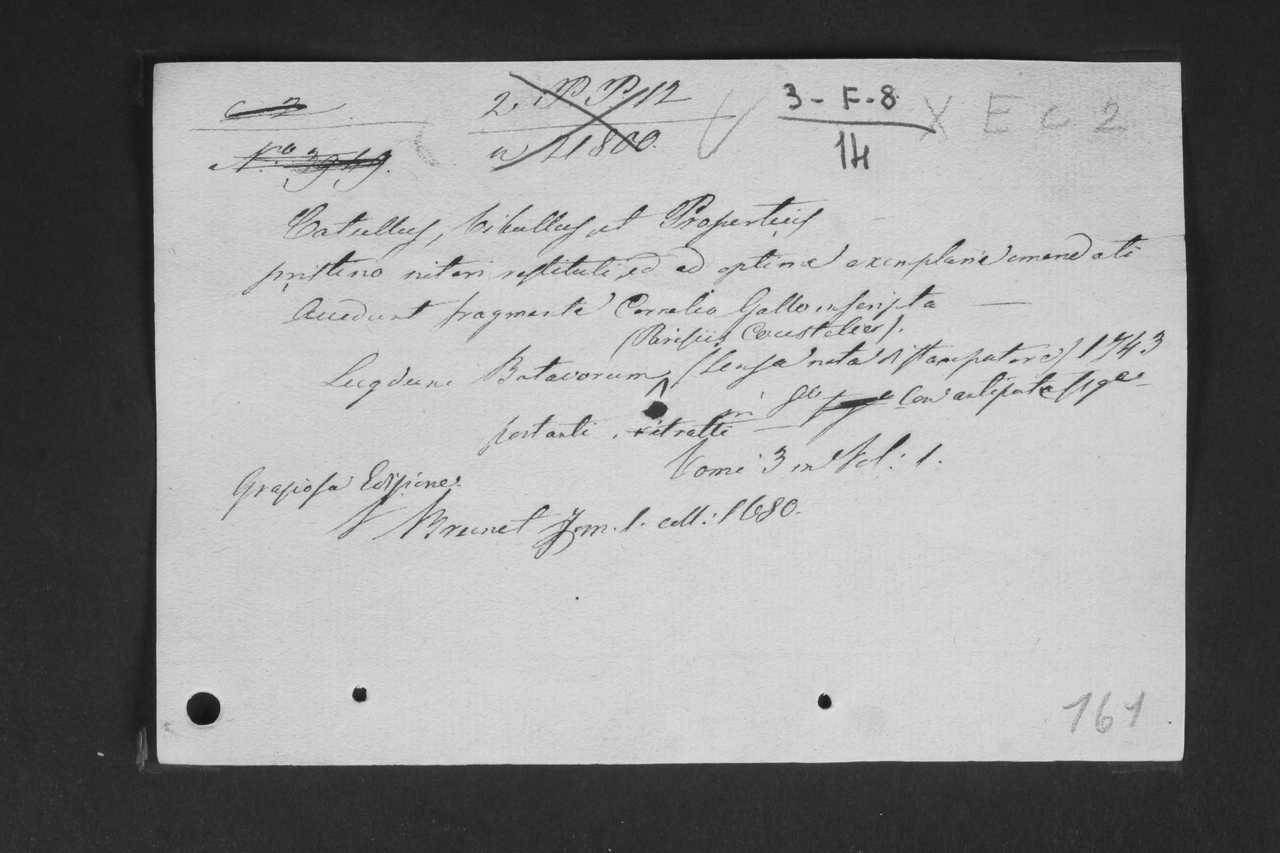 c 2
2. PP. 112
3 - F - 8
X E C 2
N.ro 3919.
a 41800.
14
Catullus, Tibullus et Propertius
pristino nitori restituti, ed ad optima exemplaria emendati
Accedunt fragmenta Cornelio Gallo inscripta —
(Parisiis Coustelier).
Lugduni Batavorum (senza nota di stampatore) 1743
in 8vo con antiporta fig.a
portanti ritratti —
Tomi 3 in Vol: 1.
Graziosa Edizione.
V Brunet Tom. 1. coll: 1680.
161